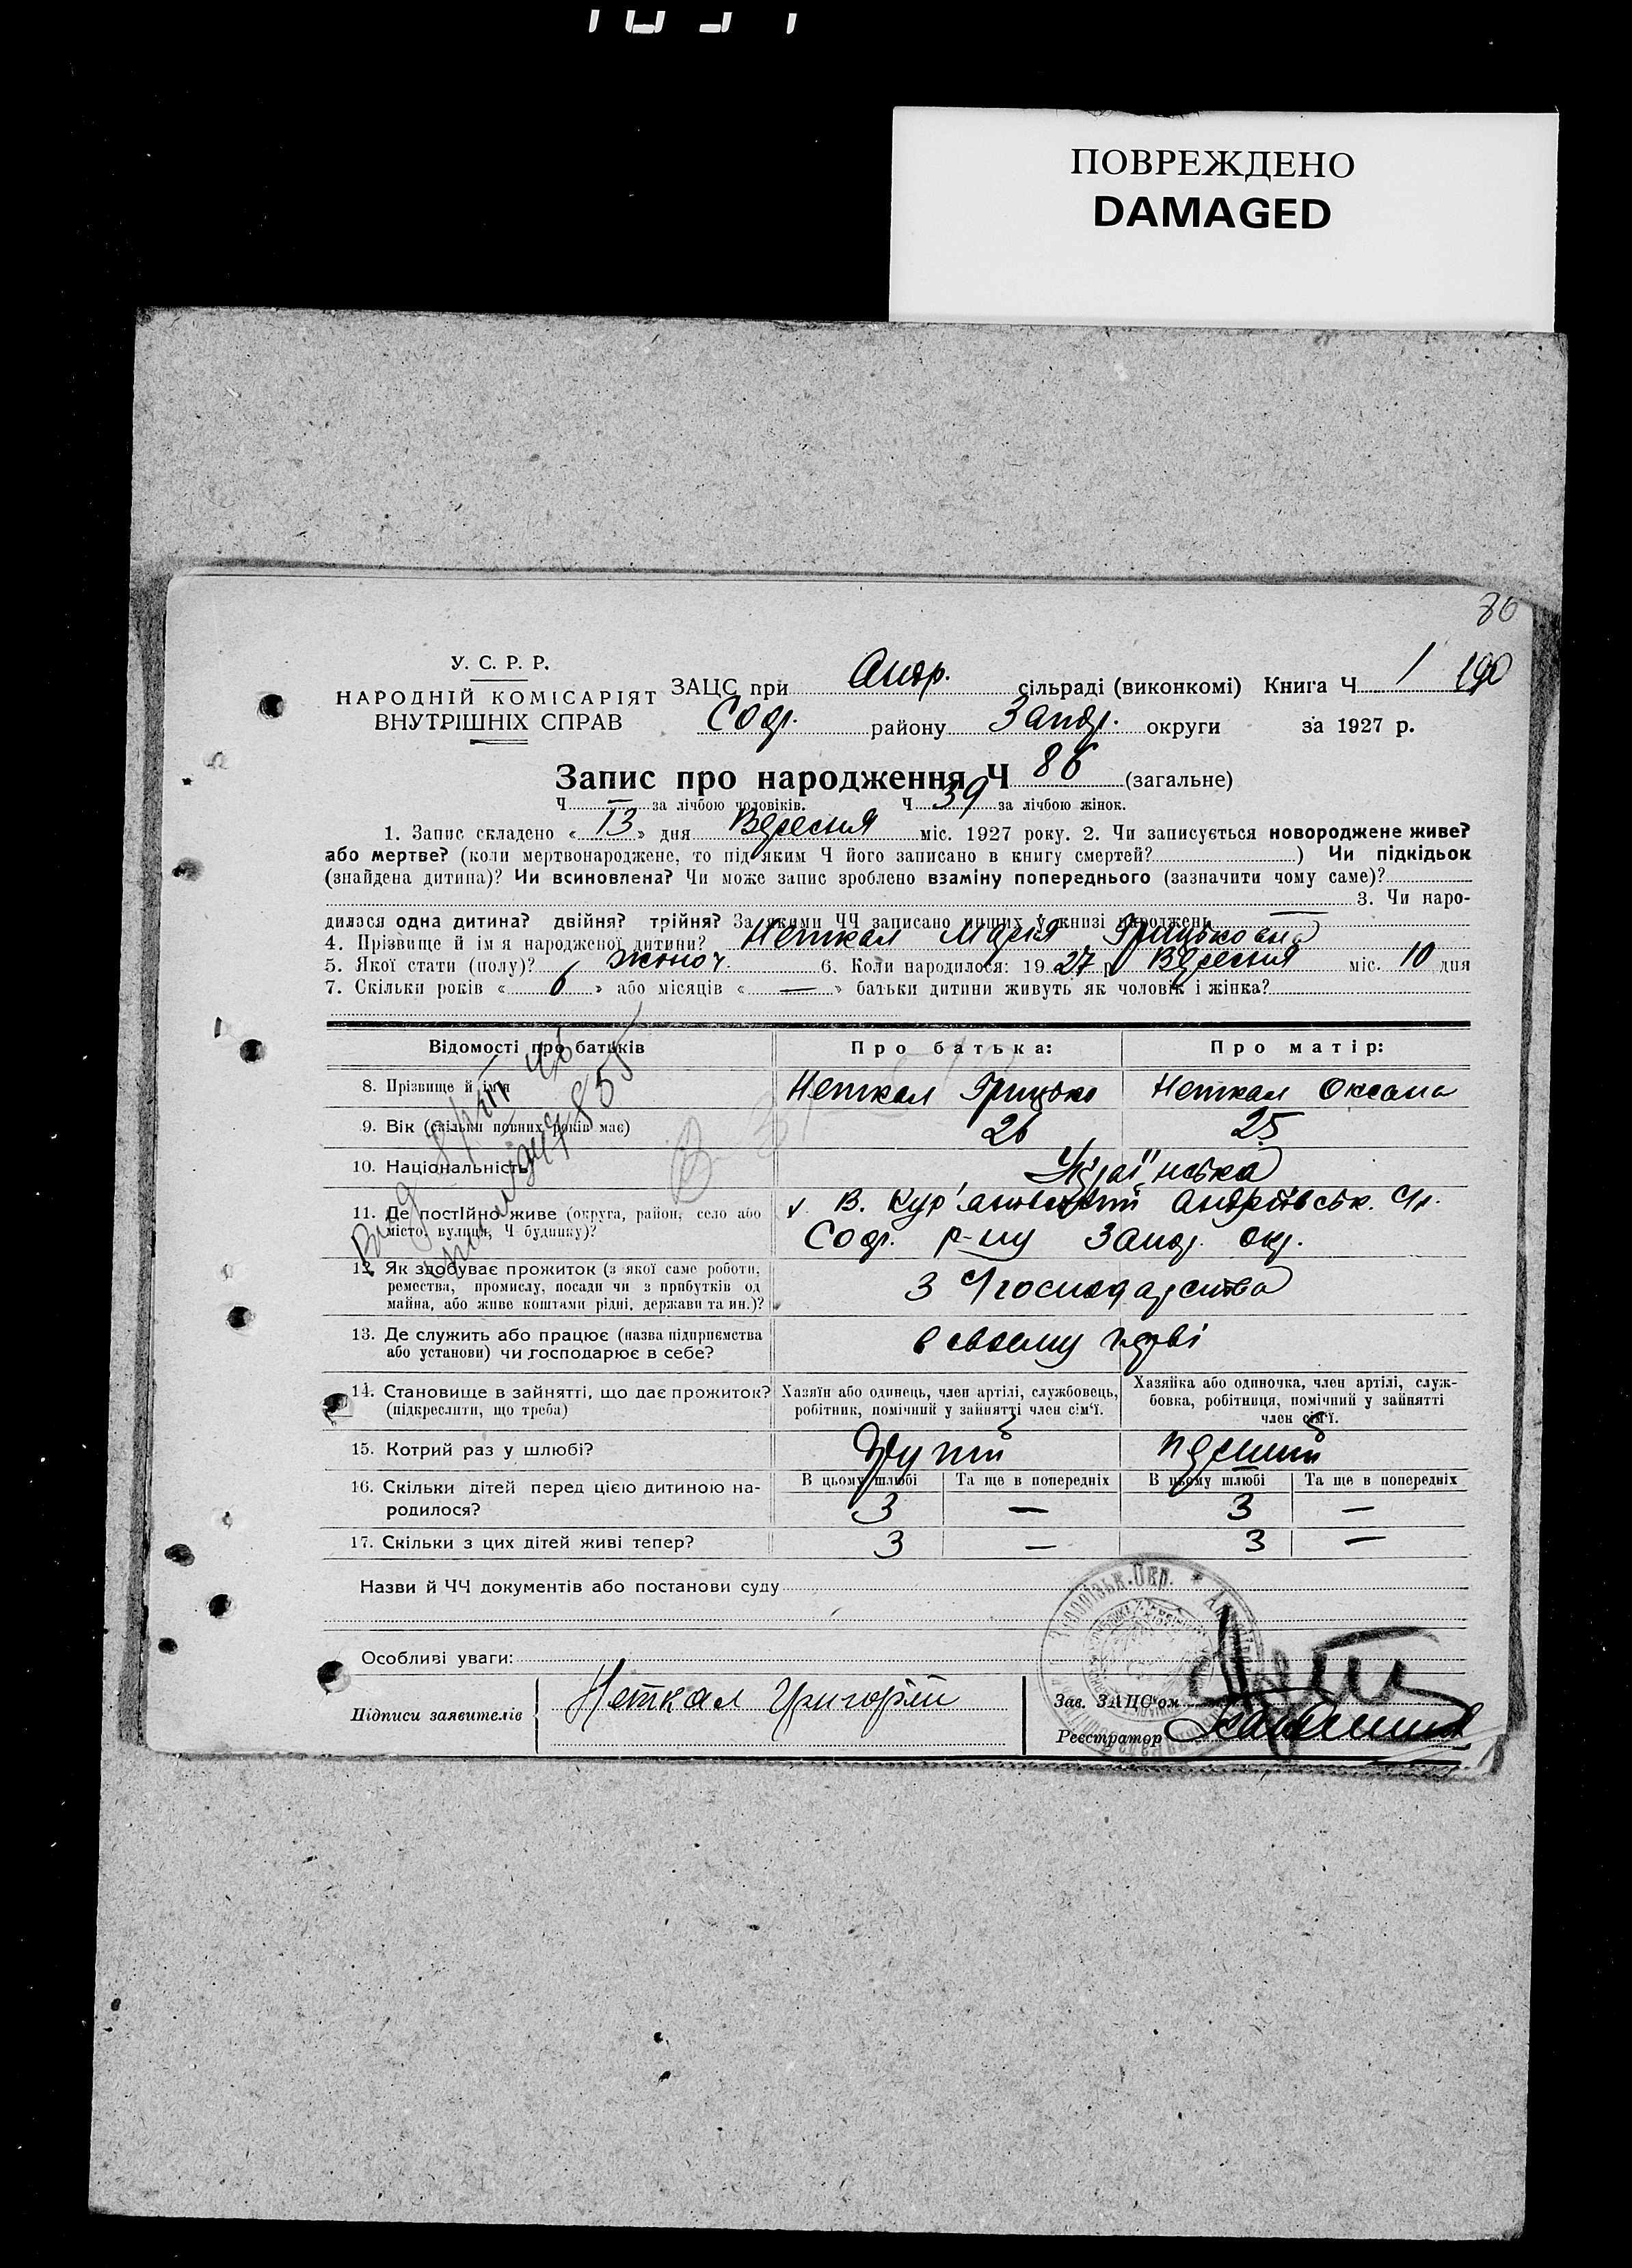 ПОВРЕЖДЕНО
DAMAGED
86
У. С. Р. Р.
НАРОДНІЙ КОМІСАРІЯТ
ВНУТРІШНІХ СПРАВ
ЗАЦС при Андр. сільраді (виконкомі) Книга Ч 1 190
Соф. району Запор. округи за 1927 р.
Запис про народження Ч 86 (загальне)
Ч — за лічбою чоловіків. Ч 39 за лічбою жінок.
1. Запис складено « 13 » дня Вересня міс. 1927 року. 2. Чи записується новороджене живе?
або мертве? (коли мертвонароджене, то під яким Ч його записано в книгу смертей? ) Чи підкідьок
(знайдена дитина)? Чи всиновлена? Чи може запис зроблено взаміну попереднього (зазначити чому саме)?
3. Чи наро-
дилася одна дитина? двійня? трійня? За якими ЧЧ записано инших у книзі народжень —
4. Прізвище й ім'я народженої дитини? Неткал Марія Грицьковна
5. Якої стати (полу)? жіноч. 6. Коли народилося: 1927 р Вересня міс. 10 дня
7. Скільки років « 6 » або місяців « — » батьки дитини живуть як чоловік і жінка?
Відомості про батьків
Про батька:
Про матір:
8. Прізвище й ім'я Неткал Грицько Неткал Оксана
9. Вік (скільки повних років має) 26 25
10. Національність Українська
11. Де постійно живе (округа, район, село або місто, вулиця, Ч будинку)? х. В. Кур'янівський Андріївськ. с/р.
Соф. р-ну Запор. окр.
12. Як здобуває прожиток (з якої саме роботи,
ремества, промислу, посади чи з прибутків од
майна, або живе коштами рідні, держави та ин.)? З с/господарства
13. Де служить або працює (назва підприємства
або установи) чи господарює в себе? в своєму
14. Становище в зайнятті, що дає прожиток?
(підкреслити, що треба)
Хазяїн або одинець, член артілі, службовець,
робітник, помічний у зайнятті член сім'ї.
Хазяйка або одиночка, член артілі, служ-
бовка, робітниця, помічний у зайнятті
член сім'ї.
15. Котрий раз у шлюбі? другий перший
16. Скільки дітей перед цією дитиною на-
родилося?
В цьому шлюбі Та ще в попередніх В цьому шлюбі Та ще в попередніх
3 — 3 —
17. Скільки з цих дітей живі тепер? 3 — 3 —
Назви й ЧЧ документів або постанови суду
Особливі уваги:
Підписи заявителів Неткал Григорій
Зав. ЗАЦС'ом
Реєстратор